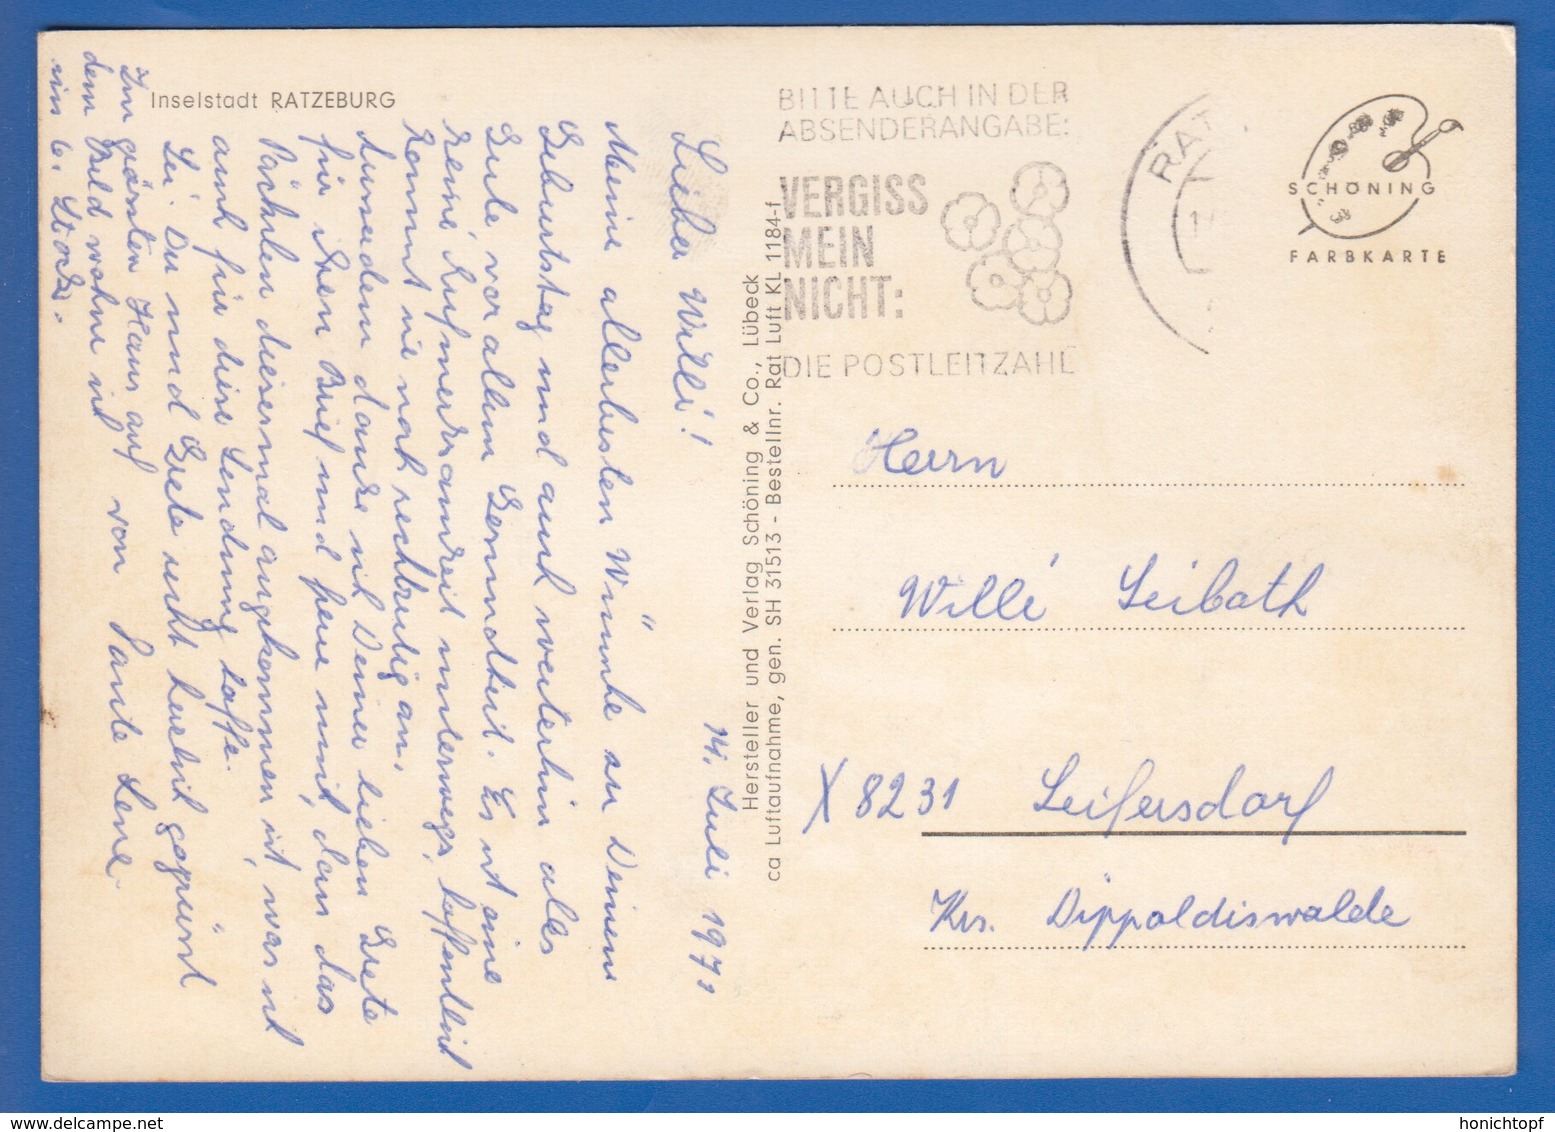 Inselstadt RATZEBURG
14. Juli 197
Lieber Willi!
Meine allerbesten Wünsche zu Deinem
Geburtstag und auch weiterhin alles
Gute vor allem Gesundheit. Es ist eine
kleine Aufmerksamkeit unterwegs, hoffentlich
kommt sie noch rechtzeitig an.
Ausserdem danke ich Deiner lieben Grete
für ihren Brief und freue mich, dass das
Päckchen diesesmal angekommen ist, was ich
auch für diese Sendung hoffe.
Sei Du und Grete recht herzlich gegrüsst
von Tante Lene.
Im grössten Haus auf
dem Bild wohne ich
im 6. Stock.
Hersteller und Verlag Schöning & Co., Lübeck
ca Luftaufnahme, gen. SH 31513 - Bestellnr. Rat Luft KL 1184-f
BITTE AUCH IN DER
ABSENDERANGABE:
VERGISS
MEIN
NICHT:
DIE POSTLEITZAHL
RAT
SCHÖNING
FARBKARTE
Herrn
Willi Seibath
X 8231 Seifersdorf
Krs. Dippoldiswalde
honichtopf